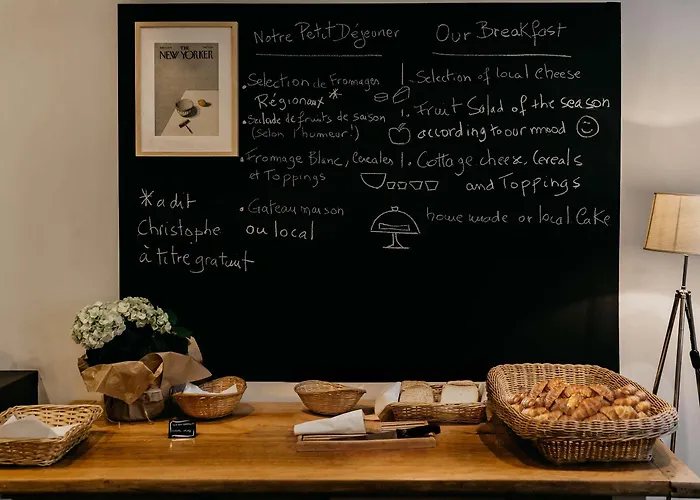 THE
NEW YORKER
Notre Petit Déjeuner
• Selection de Fromages
Régionaux *
• Salade de fruits de saison
(selon l'humeur!)
• Fromage Blanc, Cereales
et Toppings
• Gateau maison
ou local
*a dit
Christophe
à titre gratuit
Our Breakfast
Selection of local Cheese
Fruit Salad of the season
according to our mood
Cottage cheese, Cereals
and Toppings
home made or local Cake